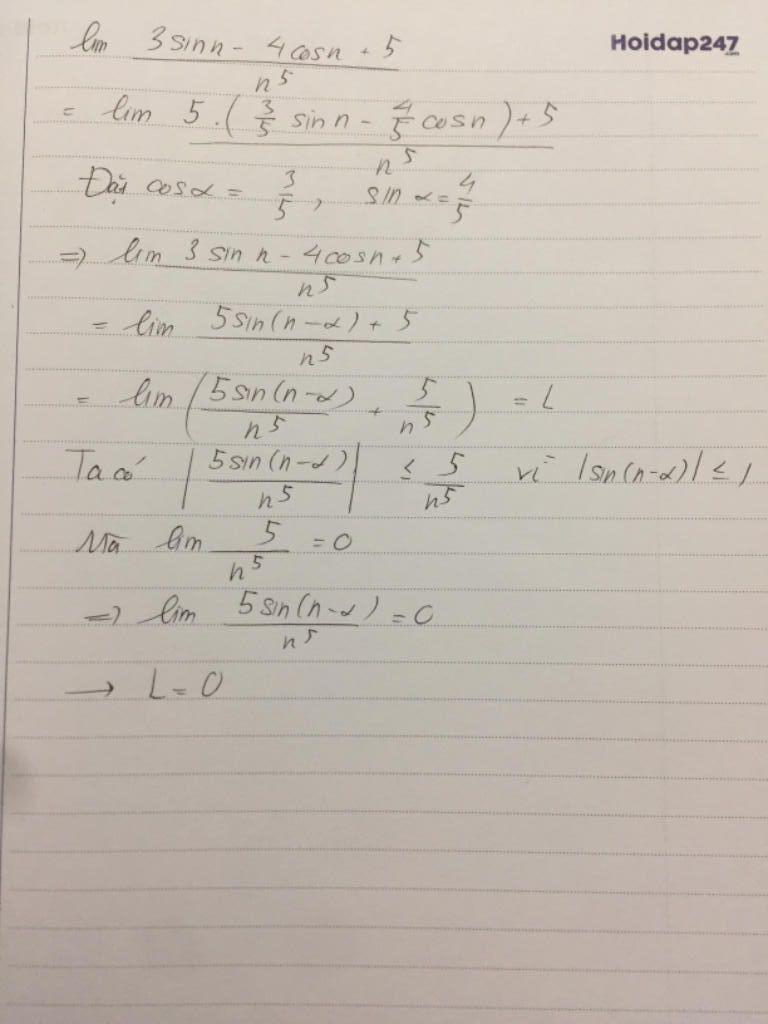 Hoidap247
.com
lim (3sinn - 4cosn + 5)/n^5
= lim (5.(3/5 sinn - 4/5 cosn) + 5)/n^5
Đặt cosα = 3/5, sin α = 4/5
=> lim (3sinn - 4cosn + 5)/n^5
= lim (5sin(n-α) + 5)/n^5
= lim (5sin(n-α)/n^5 + 5/n^5) = L
Ta có |5sin(n-α)/n^5| ≤ 5/n^5 vì |sin(n-α)| ≤ 1
Mà lim 5/n^5 = 0
=> lim 5sin(n-α)/n^5 = 0
→ L = 0